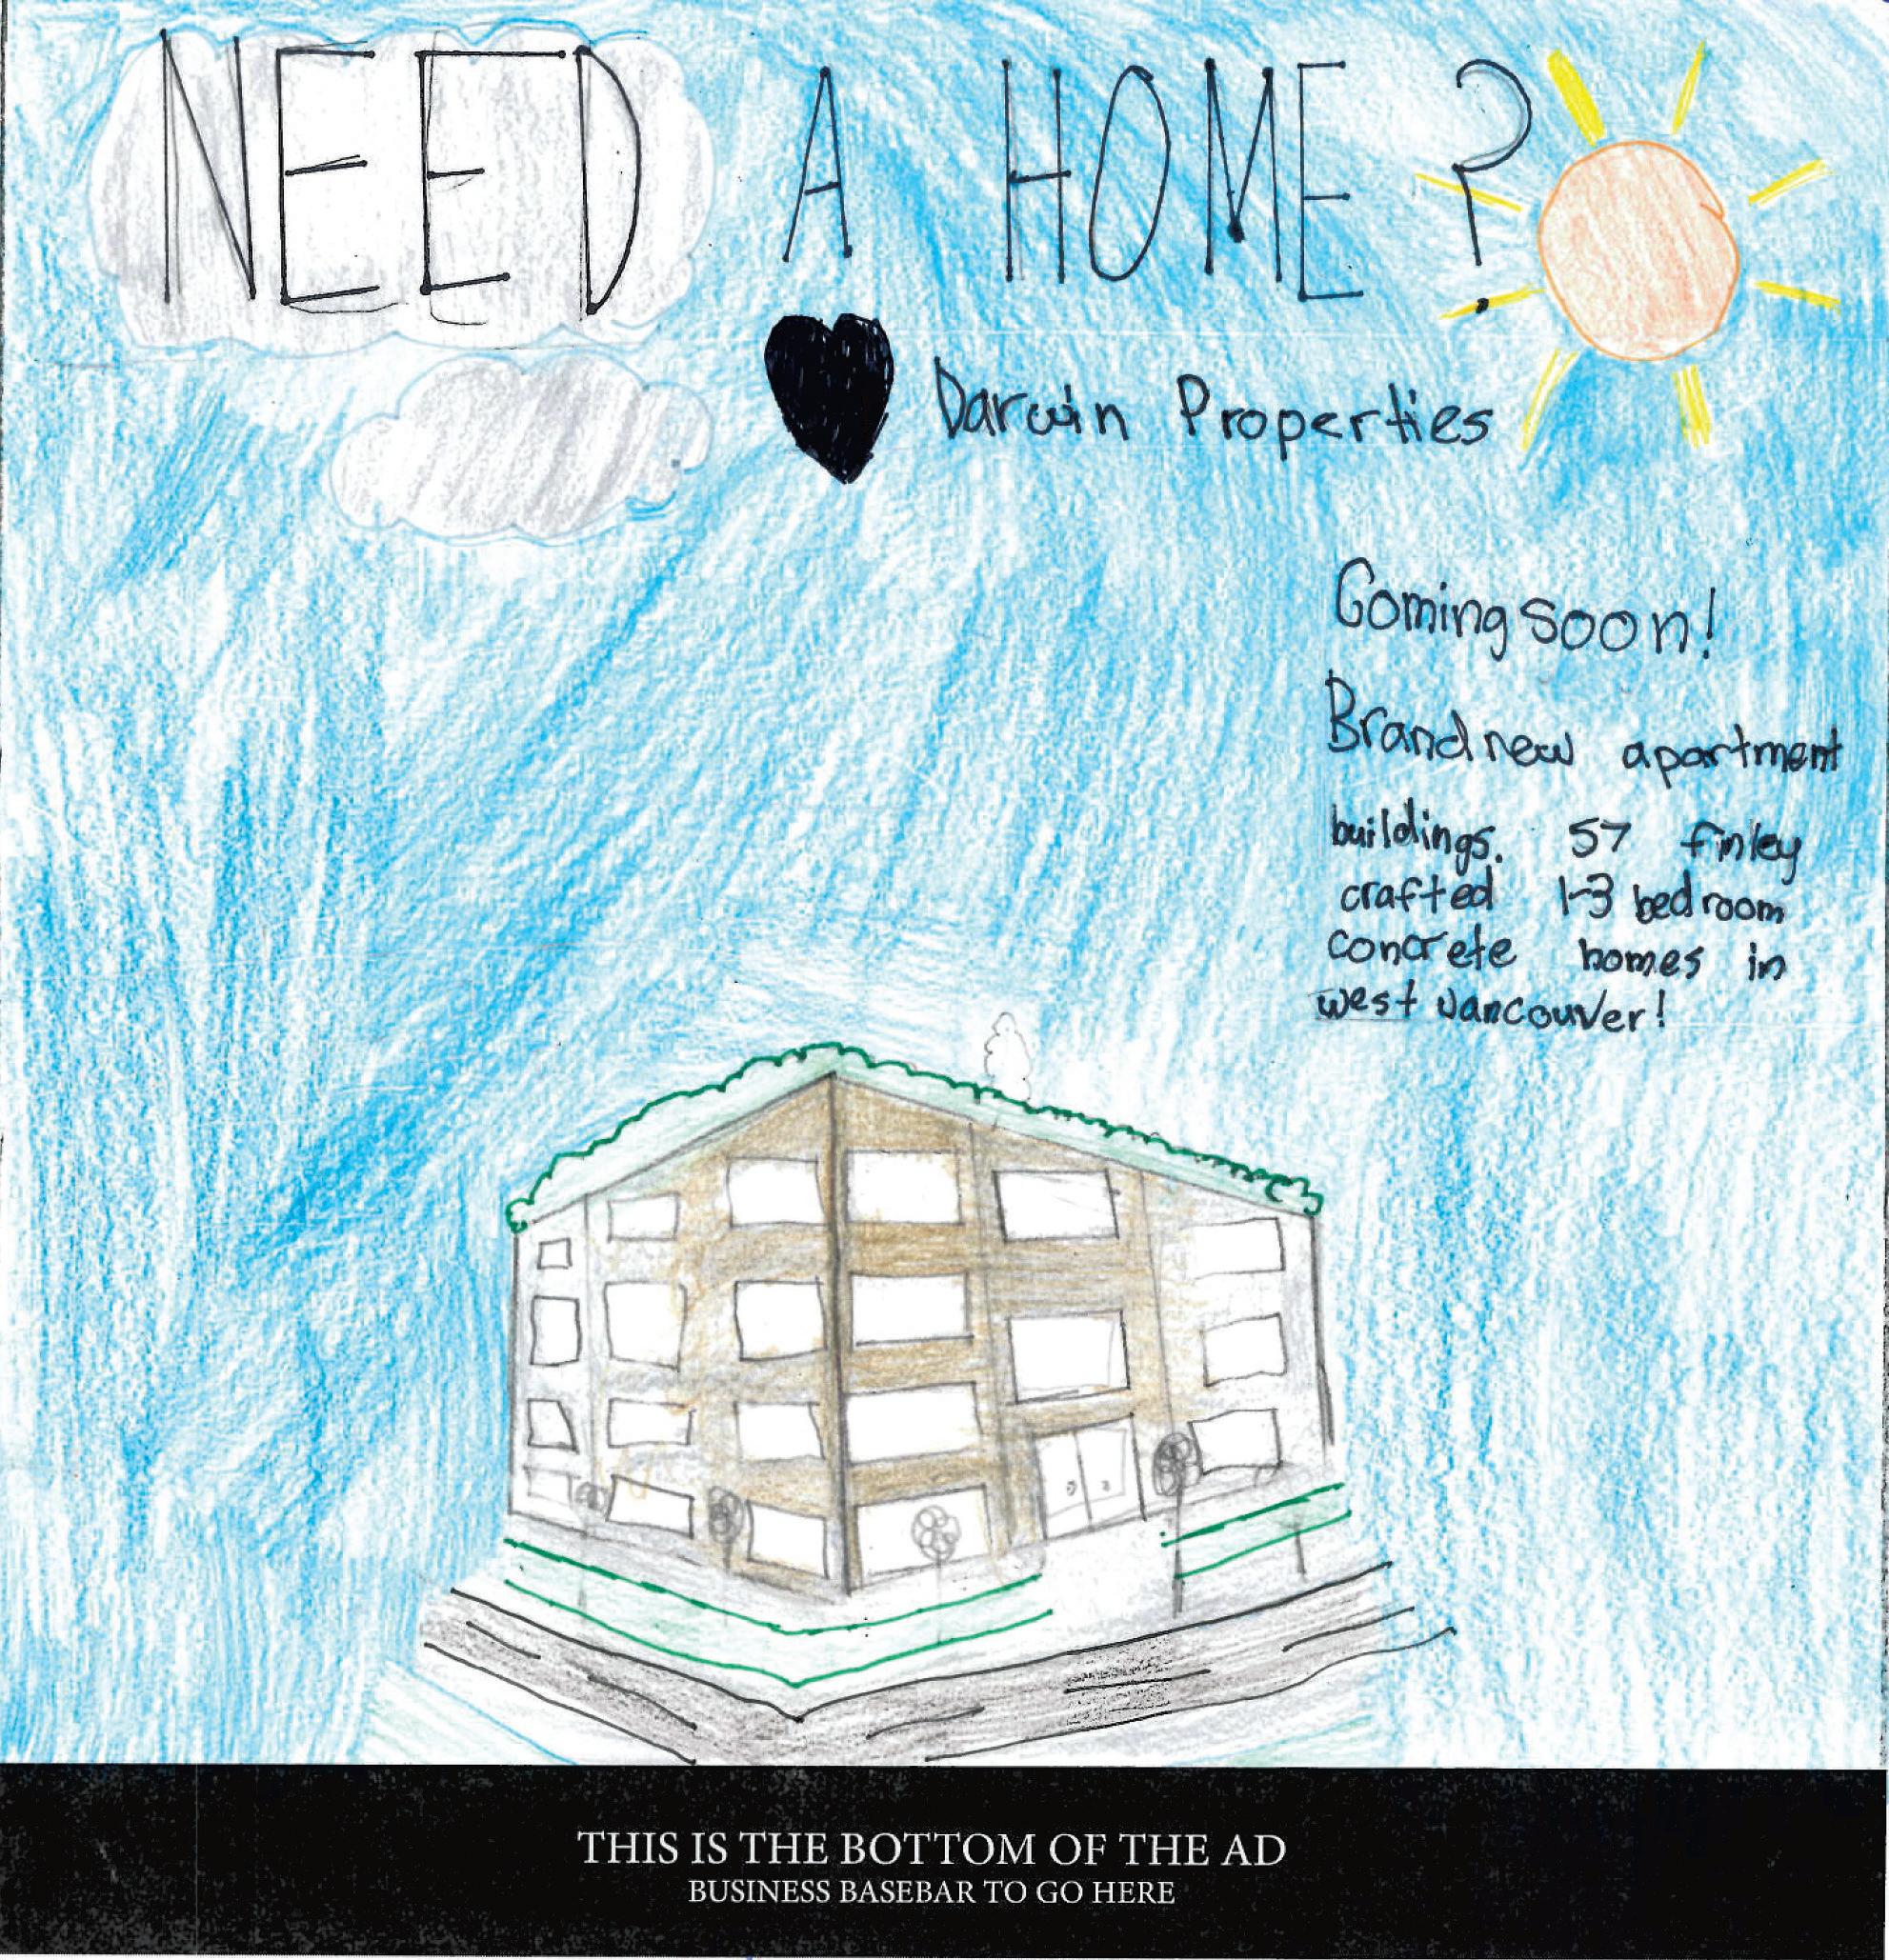 NEED A HOME ?
Darwin Properties
Coming soon!
Brand new apartment
buildings. 57 finley
crafted 1-3 bedroom
concrete homes in
west vancouver!
THIS IS THE BOTTOM OF THE AD
BUSINESS BASEBAR TO GO HERE